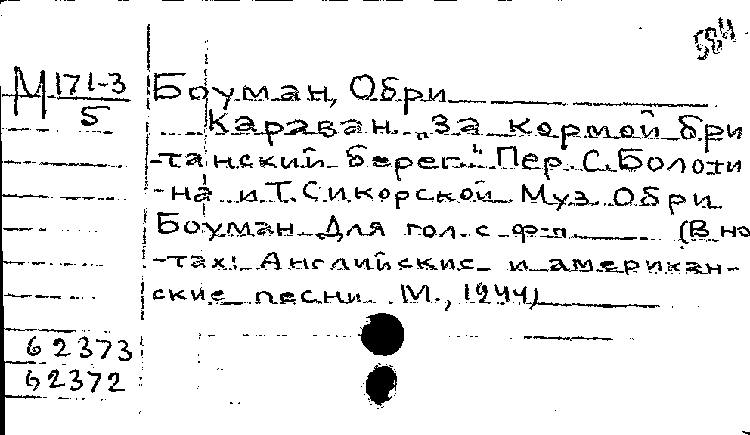 584
М 171-3
5
Боуман, Обри
Караван. „За кормой бри
-танский берег." Пер. С. Болоти
-на и Т. Сикорской Муз. Обри
Боуман Для гол. с ф-п. (В но
-тах: Английские и американ-
ские песни М., 1944)
62373
62372